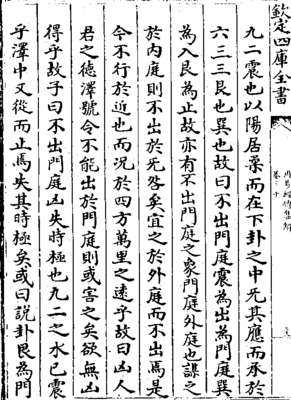 欽定四庫全書
九二震也以陽居柔而在下卦之中无其應而承於
六三三艮也巽也故曰不出門庭震為出為門庭巽
為入艮為止故亦有不出門庭之象門庭外庭也謀之
於内庭則不出於无咎矣宜之於外庭而不出焉是
令不行於近也而況於四方萬里之逺乎故曰凶人
君之德澤號令不能出於門庭則或害之矣欲無凶
得乎故子曰不出門庭凶失時極也九二之水已震
乎澤中又從而止焉失其時極矣或曰説卦艮為門